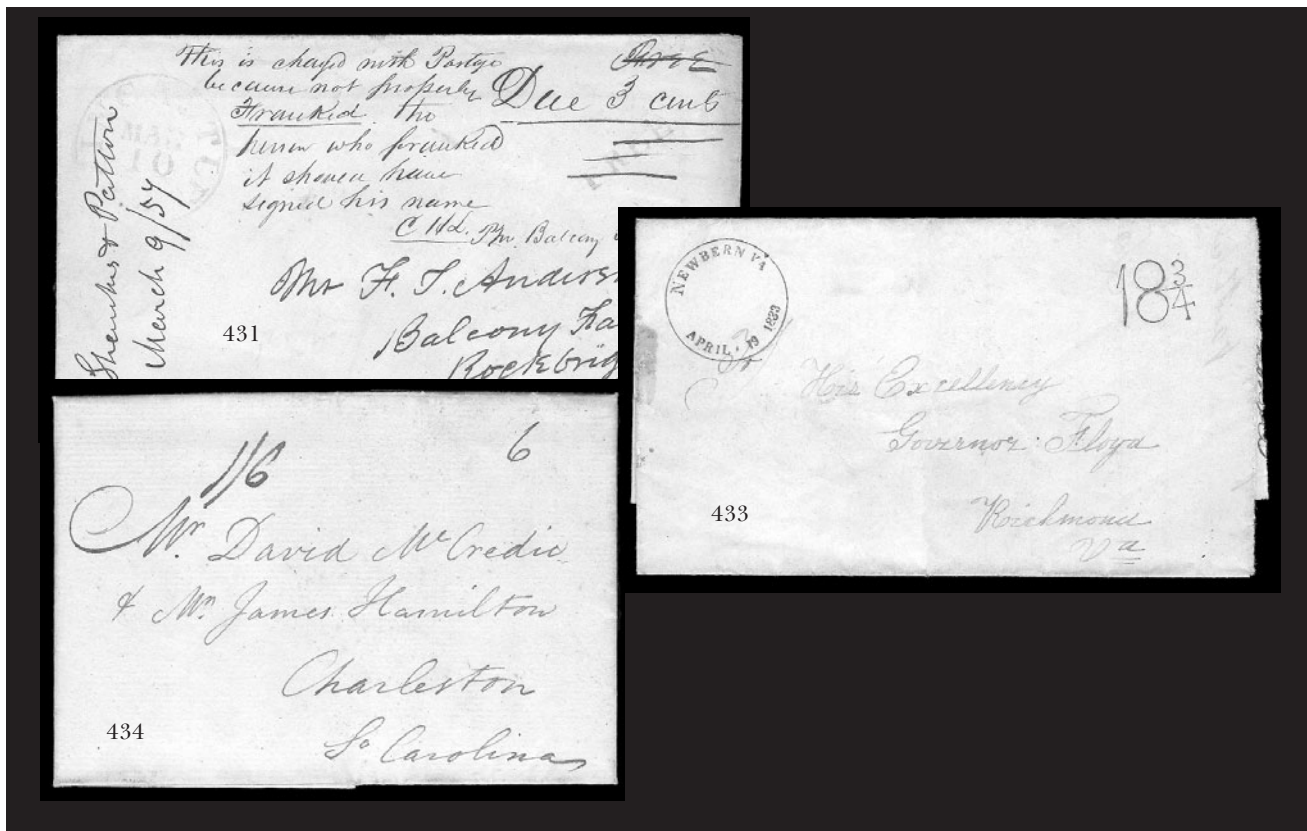 This is chargd with Postge
because not properly
Franked. the
person who franked
it should have
signed his name
C Hd. Pm. Balcony
Free
Due 3 cents
10
& Patton
March 9/57
Mr F. T. Anders
Balcony Fa
Rockbrig
431
NEWBERN VA
APRIL 19 1833
18 3/4
His Excellency
Governor Floyd
Richmond
Va
433
1/6
6
Mr. David McCredie
& Mr. James Hamilton
Charleston
So Carolina
434